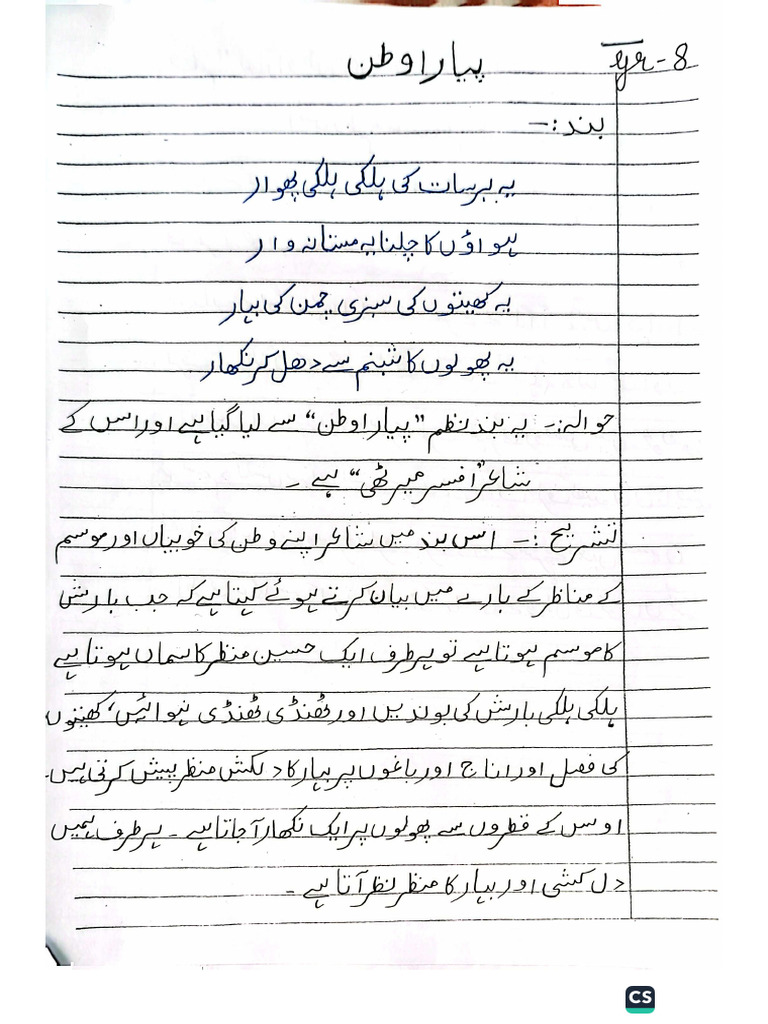 Gr-8
پیارا وطن
بند :-
یہ برسات کی ہلکی ہلکی پھوار
ہواؤں کا چلنا یہ مستانہ وار
یہ کھیتوں کی سبزی چمن کی بہار
یہ پھولوں کا شبنم سے دھل کر نکھار
حوالہ :- یہ بند نظم "پیارا وطن" سے لیا گیا ہے اور اس کے
شاعر "افسر میرٹھی" ہے ۔
تشریح :- اس بند میں شاعر اپنے وطن کی خوبیاں اور موسم
کے مناظر کے بارے میں بیان کرتے ہوئے کہتا ہے کہ جب بارش
کا موسم ہوتا ہے تو ہر طرف ایک حسین منظر کا سماں ہوتا ہے
ہلکی ہلکی بارش کی بوندیں اور ٹھنڈی ٹھنڈی ہوائیں، کھیتوں
کی فصل اور اناج اور باغوں پر بہار کا دلکش منظر پیش کرتی ہیں۔
اوس کے قطروں سے پھولوں پر ایک نکھار آ جاتا ہے ۔ ہر طرف ہمیں
دل کشی اور بہار کا منظر نظر آتا ہے ۔
CS